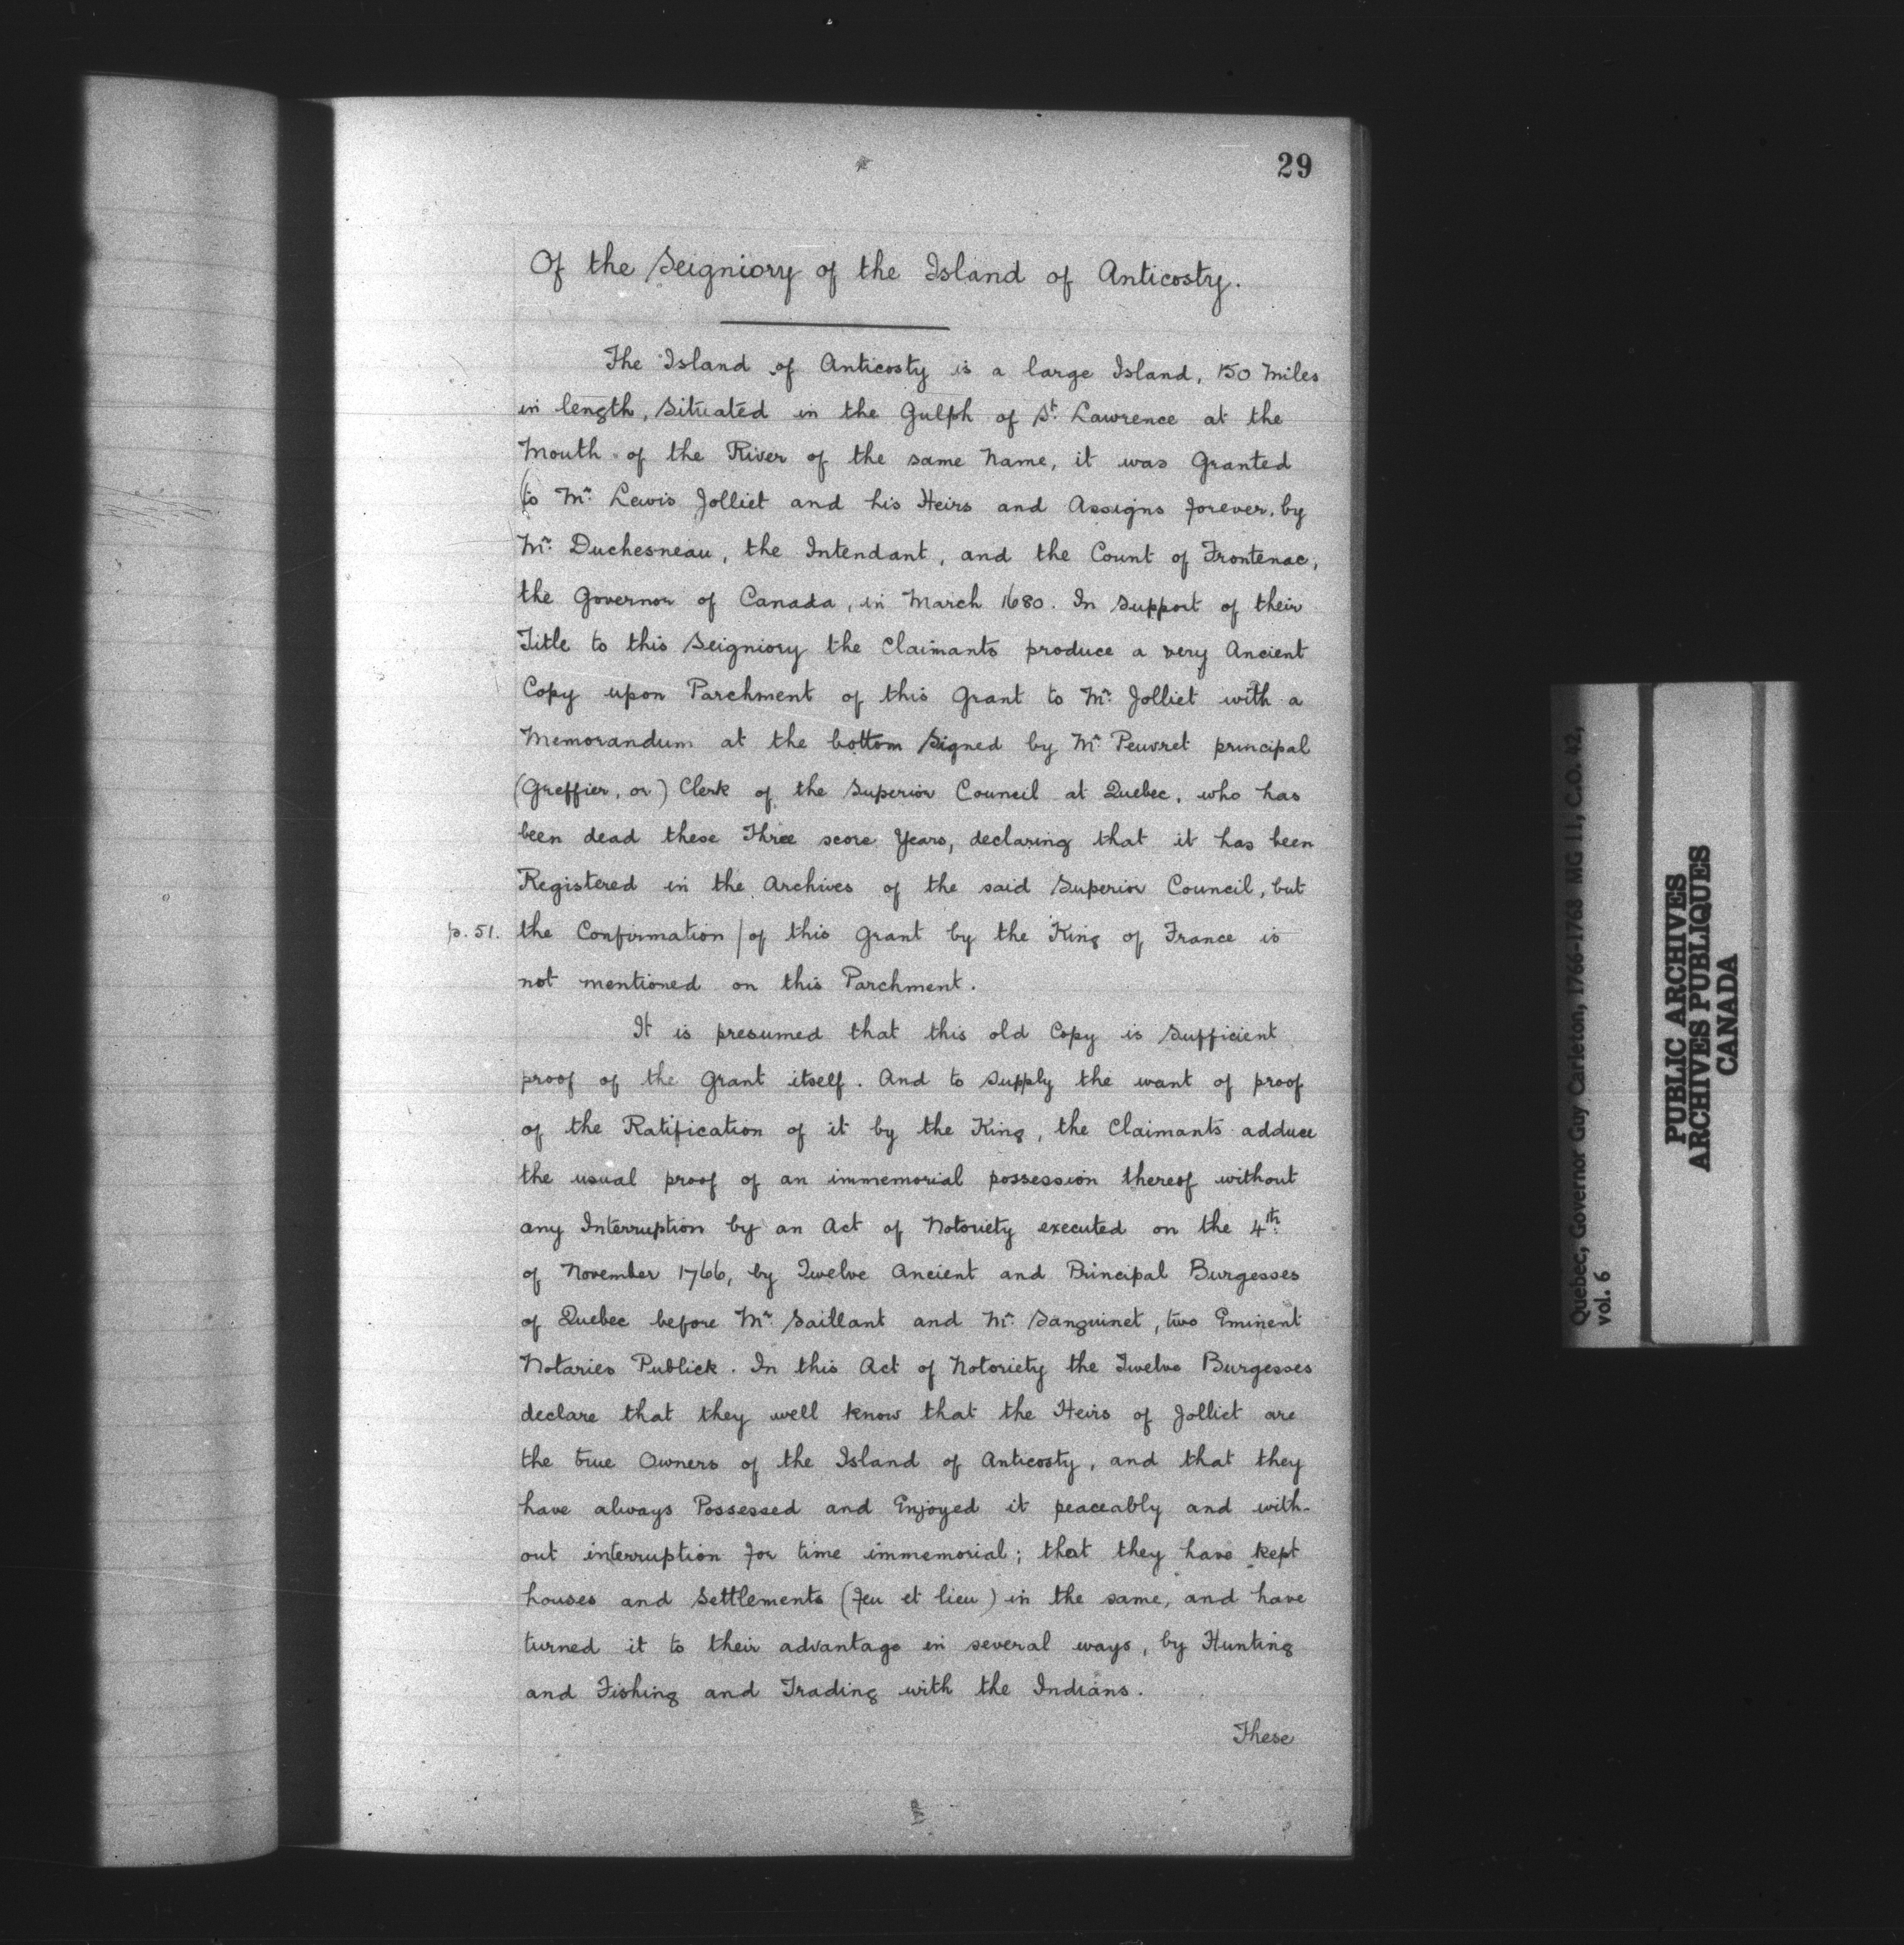 29
Of the Seigniory of the Island of Anticosty.
The Island of Anticosty is a large Island, 150 Miles
in length, Situated in the Gulph of St. Lawrence at the
Mouth of the River of the same Name, it was Granted
to Mr. Lewis Jolliet and his Heirs and Assigns forever, by
Mr. Duchesneau, the Intendant, and the Count of Frontenac,
the Governor of Canada, in March 1680. In Support of their
Title to this Seigniory the Claimants produce a very Ancient
Copy upon Parchment of this Grant to Mr. Jolliet with a
Memorandum at the bottom Signed by Mr. Peuvret principal
(Greffier, or) Clerk of the Superior Council at Quebec, who has
been dead these Three score Years, declaring that it has been
Registered in the Archives of the said Superior Council, but
p. 51. the Confirmation / of this Grant by the King of France is
not mentioned on this Parchment.
It is presumed that this old Copy is Sufficient
proof of the Grant itself. And to Supply the want of proof
of the Ratification of it by the King, the Claimants adduce
the usual proof of an immemorial possession thereof without
any Interruption by an Act of Notoriety executed on the 4th.
of November 1766, by Twelve Ancient and Principal Burgesses
of Quebec before Mr. Saillant and Mr. Sanguinet, two Eminent
Notaries Publick. In this Act of Notoriety the Twelve Burgesses
declare that they well know that the Heirs of Jolliet are
the true Owners of the Island of Anticosty, and that they
have always Possessed and Enjoyed it peaceably and with-
out interruption for time immemorial; that they have kept
houses and Settlements (feu et lieu) in the same, and have
turned it to their advantage in several ways, by Hunting
and Fishing and Trading with the Indians.
These
Quebec, Governor Guy Carleton, 1766-1768 MG 11, C.O. 42,
vol. 6
PUBLIC ARCHIVES
ARCHIVES PUBLIQUES
CANADA